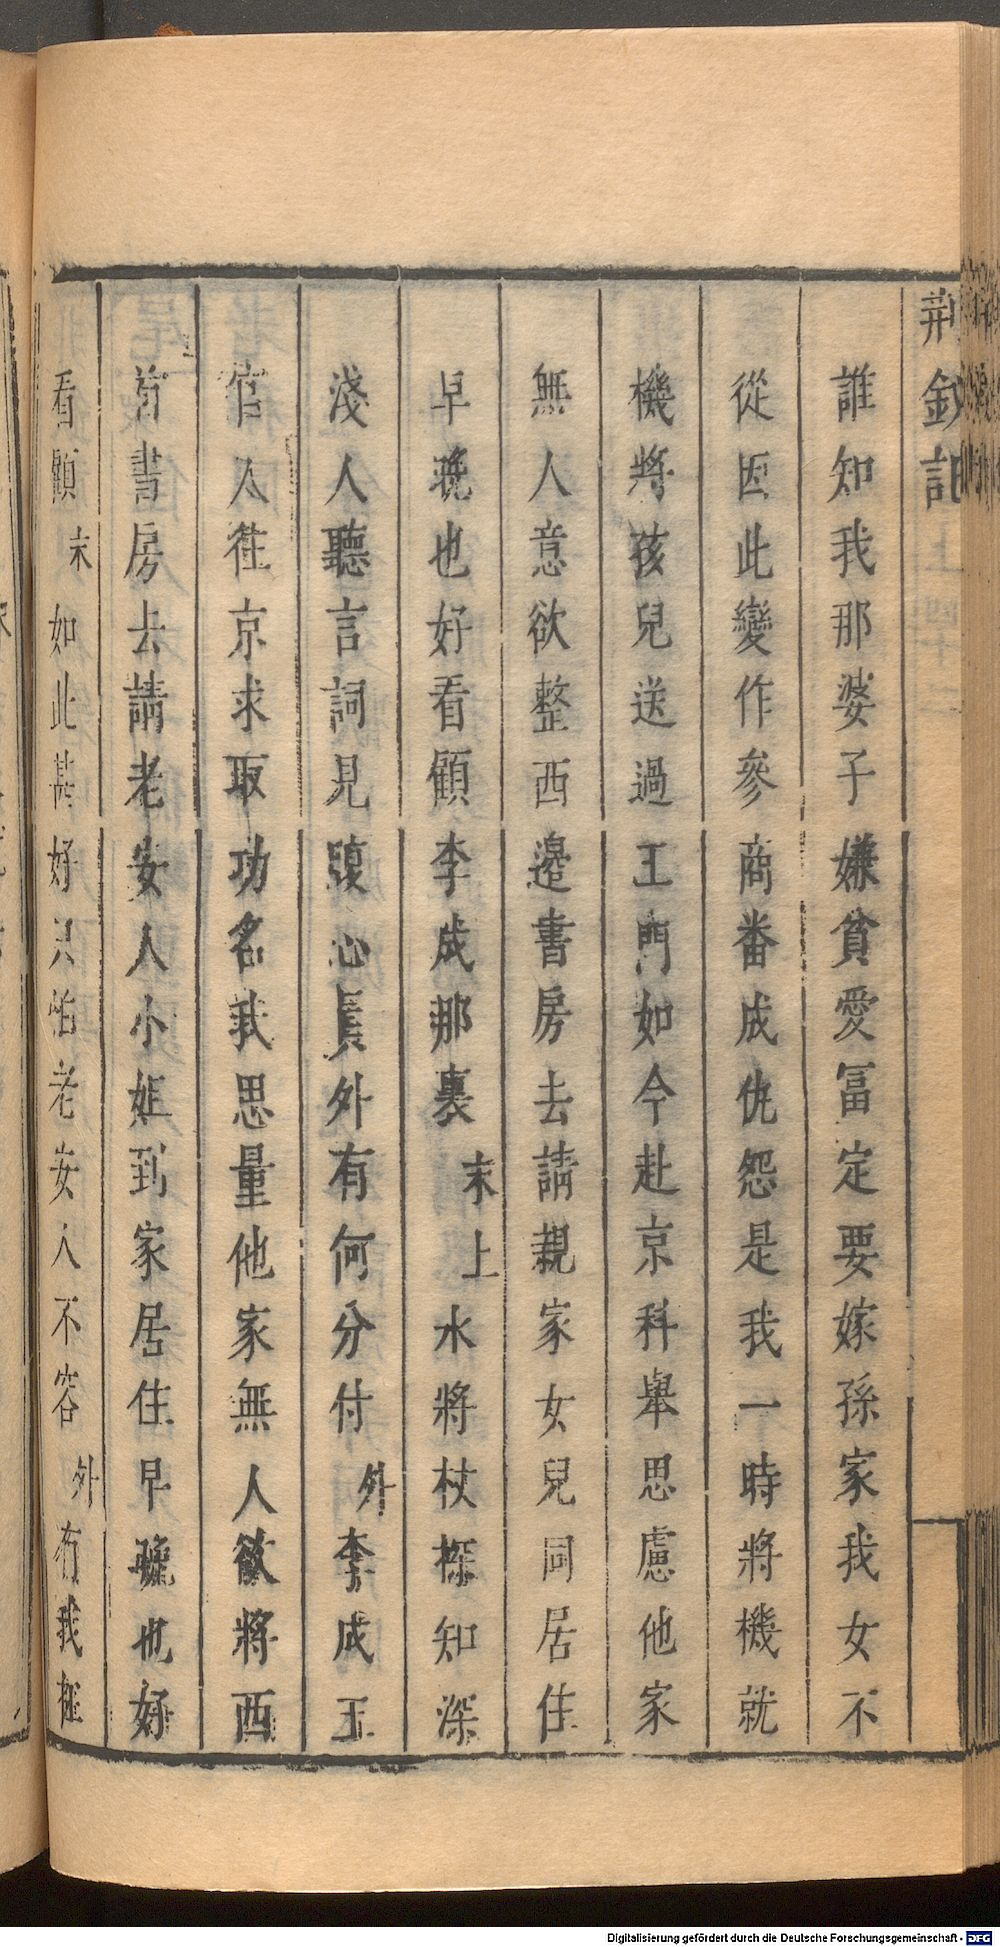 荆釵記
誰知我那婆子嫌貧愛冨定要嫁孫家我女不
從因此變作參商番成仇怨是我一時將機就
機將孩兒送過王門如今赴京科舉思慮他家
無人意欲整西邊書房去請親家女兒同居住
早晚也好看顧李成那裏末上水將杖探知深
淺人聽言詞見腹心員外有何分付外李成王
官人徃京求取功名我思量他家無人欲將西
首書房去請老安人小姐到家居住早晚也好
看顧末如此甚好只怕老安人不容外有我在
Digitalisierung gefördert durch die Deutsche Forschungsgemeinschaft - DFG